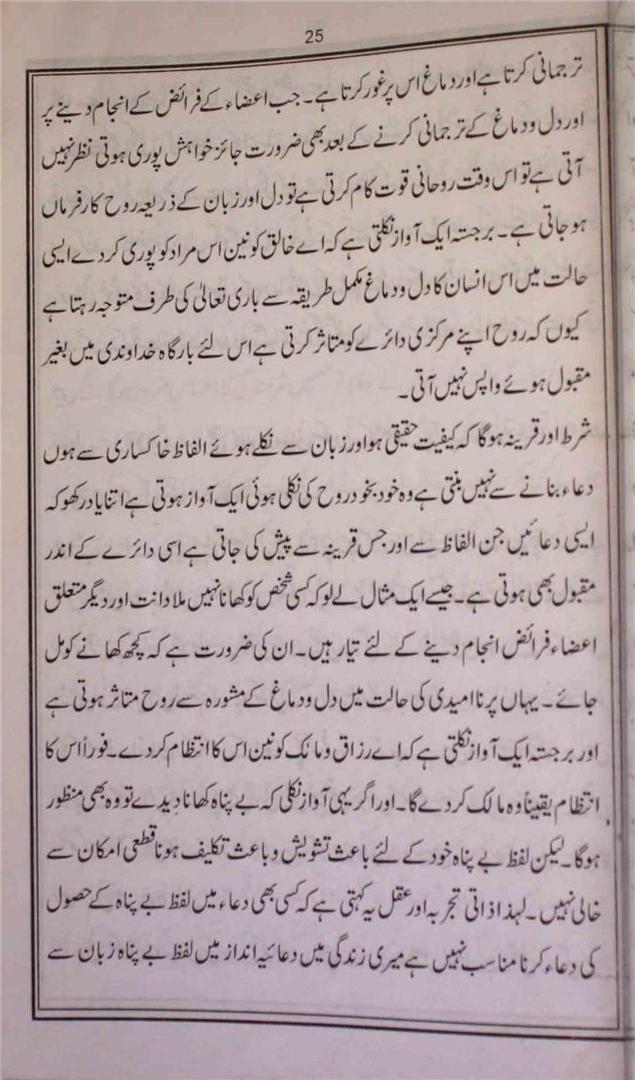 25
ترجمانی کرتا ہے اور دماغ اس پر غور کرتا ہے۔ جب اعضاء کے فرائض کے انجام دینے پر
اور دل و دماغ کے ترجمانی کرنے کے بعد بھی ضرورت جائز خواہش پوری ہوتی نظر نہیں
آتی ہے تو اس وقت روحانی قوت کام کرتی ہے تو دل اور زبان کے ذریعہ روح کارفرماں
ہو جاتی ہے۔ برجستہ ایک آواز نکلتی ہے کہ اے خالق کونین اس مراد کو پوری کر دے ایسی
حالت میں اس انسان کا دل و دماغ مکمل طریقہ سے باری تعالیٰ کی طرف متوجہ رہتا ہے
کیوں کہ روح اپنے مرکزی دائرے کو متاثر کرتی ہے اس لئے بارگاہ خداوندی میں بغیر
مقبول ہوئے واپس نہیں آتی۔
شرط اور قرینہ ہوگا کہ کیفیت حقیقی ہو اور زبان سے نکلے ہوئے الفاظ خاکساری سے ہوں
دعاء بنانے سے نہیں بنتی ہے وہ خود بخود روح کی نکلی ہوئی ایک آواز ہوتی ہے اتنا یاد رکھو کہ
ایسی دعائیں جن الفاظ سے اور جس قرینہ سے پیش کی جاتی ہے اسی دائرے کے اندر
مقبول بھی ہوتی ہے۔ جیسے ایک مثال لے لو کہ کسی شخص کو کھانا نہیں ملا دانت اور دیگر متعلق
اعضاء فرائض انجام دینے کے لئے تیار ہیں۔ ان کی ضرورت ہے کہ کچھ کھانے کو مل
جائے۔ یہاں پر نا امیدی کی حالت میں دل و دماغ کے مشورہ سے روح متاثر ہوتی ہے
اور برجستہ ایک آواز نکلتی ہے کہ اے رزاق و مالک کونین اس کا انتظام کر دے۔ فوراً اس کا
انتظام یقیناً وہ مالک کر دے گا۔ اور اگر یہی آواز نکلی کہ بے پناہ کھانا دیدے تو وہ بھی منظور
ہوگا۔ لیکن لفظ بے پناہ خود کے لئے باعث تشویش و باعث تکلیف ہونا قطعی امکان سے
خالی نہیں۔ لہذا ذاتی تجربہ اور عقل یہ کہتی ہے کہ کسی بھی دعاء میں لفظ بے پناہ کے حصول
کی دعاء کرنا مناسب نہیں ہے میری زندگی میں دعائیہ انداز میں لفظ بے پناہ زبان سے